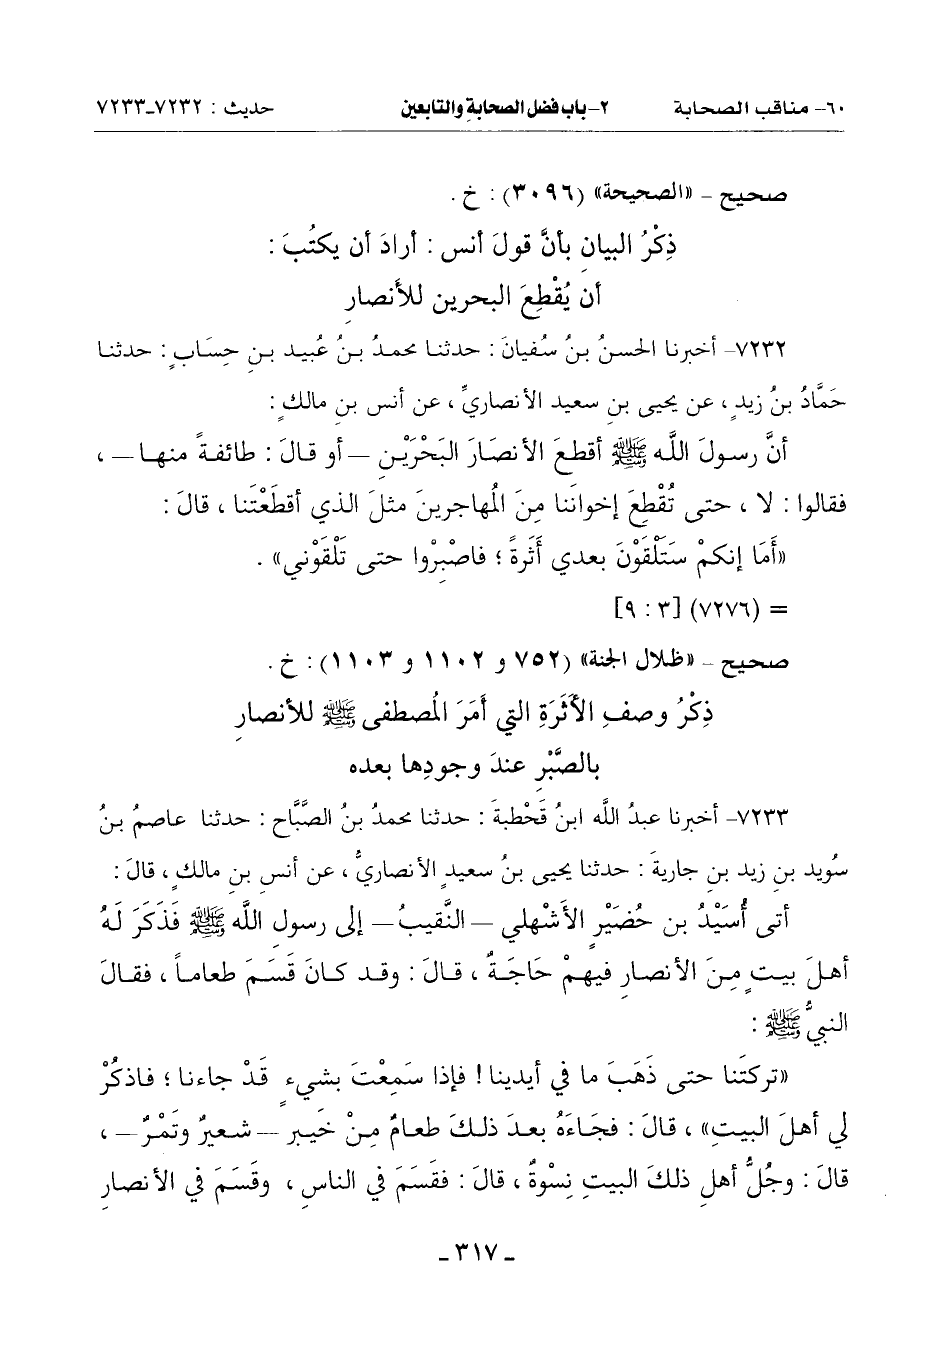 ٦٠- مناقب الصحابة ٢-باب فضل الصحابة والتابعين حديث : ٧٢٣٢-٧٢٣٣
صحيح - «الصحيحة» (٣٠٩٦) : خ .
ذِكْرُ البيانِ بأنَّ قولَ أنس : أرادَ أن يكتُبَ :
أن يُقْطِعَ البحرين للأنصارِ
٧٢٣٢- أخبرنا الحسنُ بنُ سُفيانَ : حدثنا محمدُ بنُ عُبيد بنِ حِسَابٍ : حدثنا
حَمَّادُ بنُ زيدٍ ، عن يحيى بنِ سعيد الأنصاريِّ ، عن أنس بنِ مالكٍ :
أنَّ رسولَ اللَّه ﷺ أقطعَ الأنصَارَ البَحْرَيْنِ — أو قالَ : طائفةً منها — ،
فقالوا : لا ، حتى تُقْطِعَ إخوانَنا مِنَ المُهاجرينَ مثلَ الذي أقطَعْتَنا ، قالَ :
«أَمَا إنكمْ سَتَلْقَوْنَ بعدي أَثَرةً ؛ فاصْبِرْوا حتى تَلْقَوْني» .
= (٧٢٧٦) [٣ : ٩]
صحيح - «ظلال الجنة» (٧٥٢ و ١١٠٢ و ١١٠٣) : خ .
ذِكْرُ وصفِ الأَثَرَةِ التي أَمَرَ المُصطفى ﷺ للأنصارِ
بالصَّبْرِ عندَ وجودِها بعده
٧٢٣٣- أخبرنا عبدُ اللَّه ابنُ قَحْطبةَ : حدثنا محمدُ بنُ الصَّبَّاح : حدثنا عاصمُ بنُ
سُويد بنِ زيد بنِ جاريةَ : حدثنا يحيى بنُ سعيدٍ الأنصاريُّ ، عن أنس بنِ مالكٍ ، قالَ :
أتى أُسَيْدُ بن حُضَيْرٍ الأَشْهلي — النَّقيبُ — إلى رسولِ اللَّه ﷺ فَذَكَرَ لَهُ
أهلَ بيتٍ مِنَ الأنصارِ فيهِمْ حَاجَةٌ ، قالَ : وقد كانَ قَسَمَ طعاماً ، فقالَ
النبيُّ ﷺ :
«تركتَنا حتى ذَهَبَ ما في أيدينا ! فإذا سَمِعْتَ بشيءٍ قَدْ جاءنا ؛ فاذكُرْ
لي أهلَ البيتِ» ، قالَ : فجَاءَهُ بعدَ ذلكَ طعامٌ مِنْ خَيبر — شعيرٌ وتَمْرٌ — ،
قالَ : وجُلُّ أهلِ ذلكَ البيتِ نِسْوةٌ ، قالَ : فقَسَمَ في الناسِ ، وقَسَمَ في الأنصارِ
- ٣١٧ -